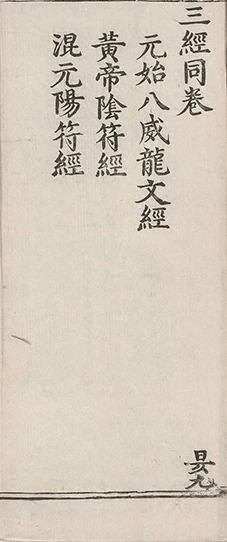 三經同卷
元始八威龍文經
黃帝陰符經
混元陽符經
昃九